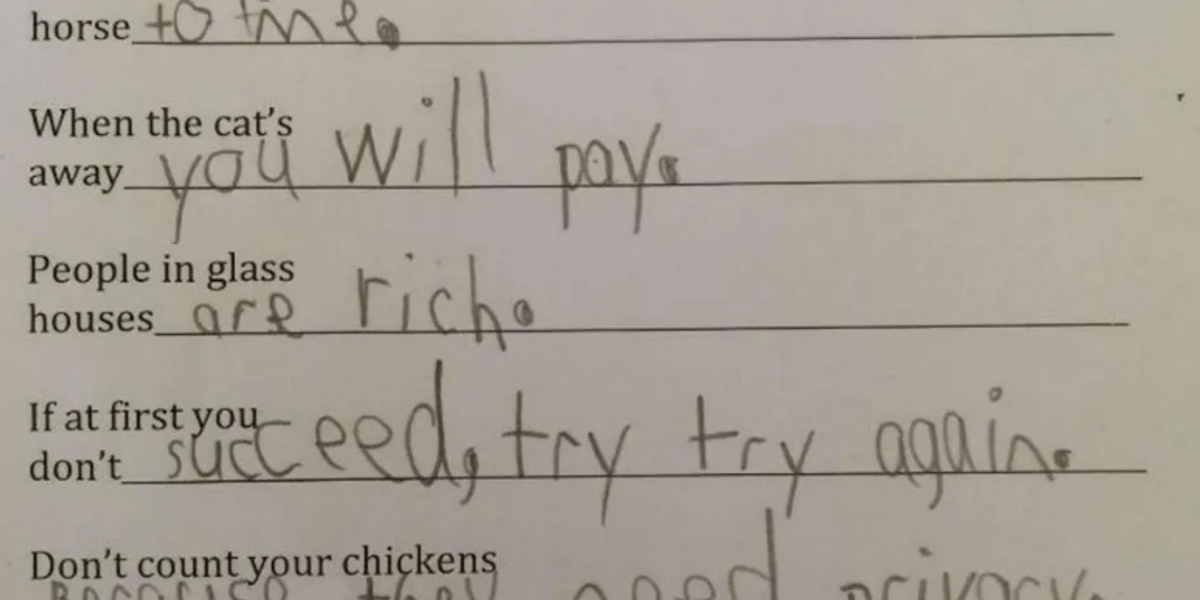 horse to me.
When the cat's
away you will pay.
People in glass
houses are rich.
If at first you
don't succeed, try try again.
Don't count your chickens
Because they need privacy.